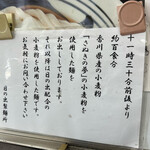 十一時三十分前後より
約百食分
香川県産の小麦粉
「さぬきの夢」の小麦粉を
使用した麺を
お出ししております。
それ以降は日の出配合の
小麦粉を使用した麺です。
お気軽にお問い合わせ下さい。
日の出製麺所